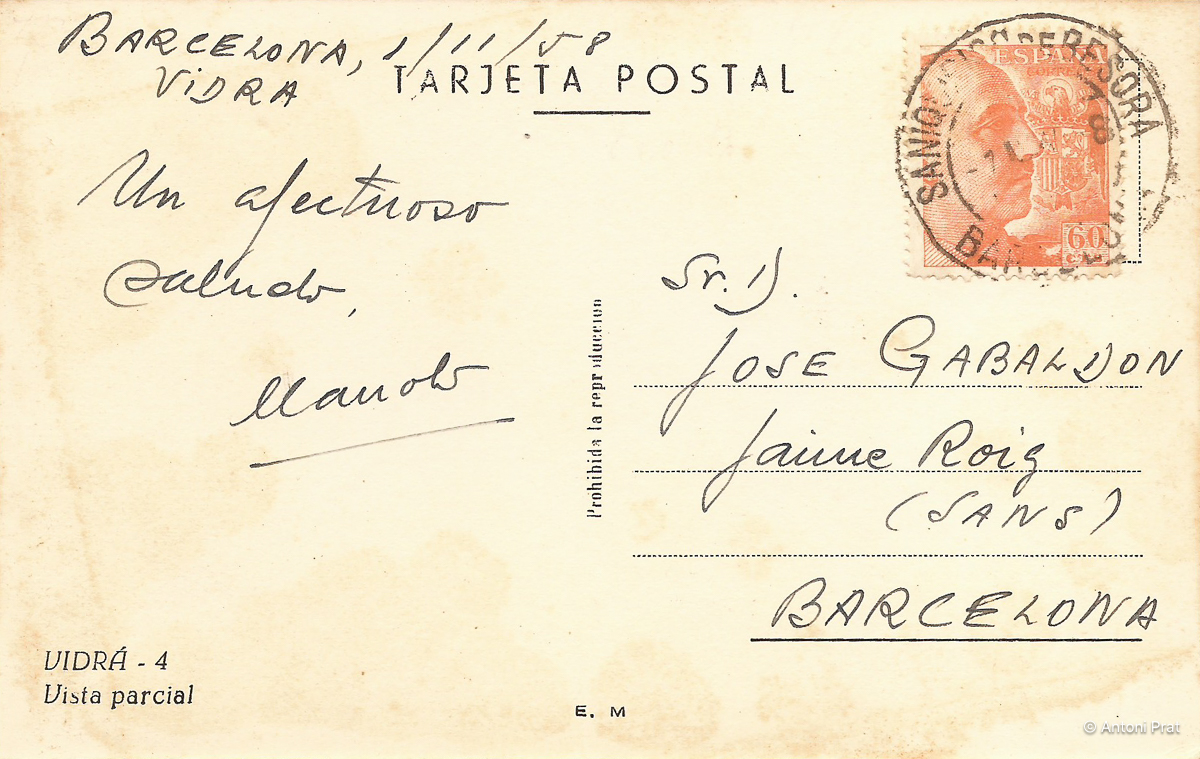 BARCELONA, 1/11/58
VIDRA
TARJETA POSTAL
Un afectuoso
saludo,
Manolo
Prohibida la reproduccion
ESPAÑA
CORREOS
60
CTS
BARCELONA
Sr. D.
JOSE GABALDON
Jaime Roig
(SANS)
BARCELONA
VIDRÁ - 4
Vista parcial
E. M
© Antoni Prat